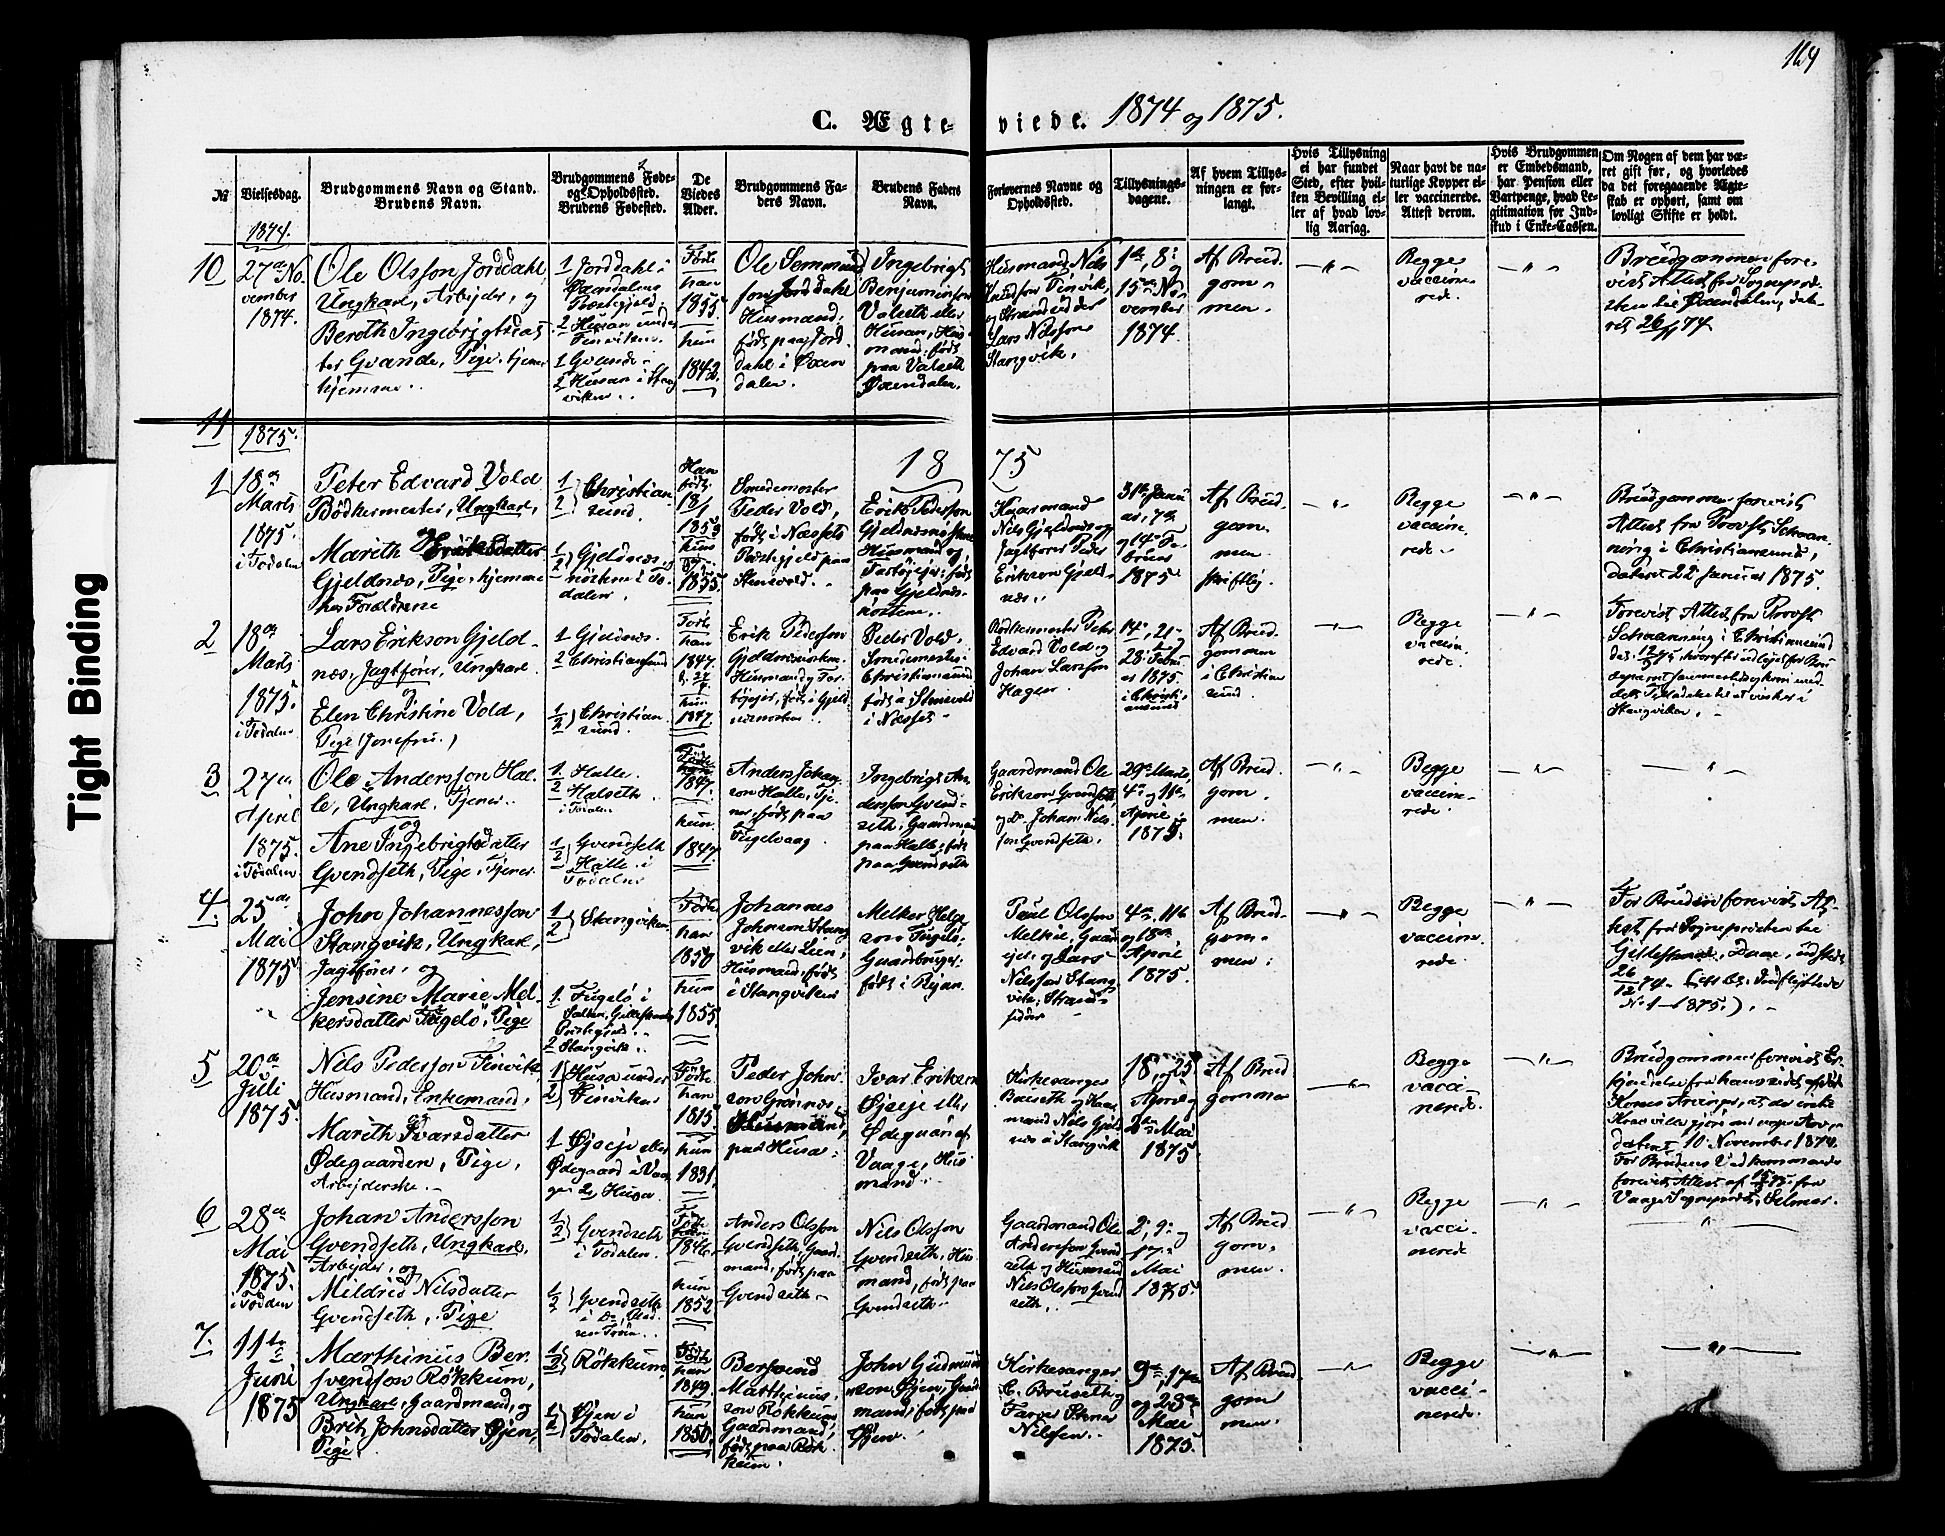 169
C. Ægte-viede. 1874 og 1875.
№
Vielsesdag.
Brudgommens Navn og Stand.
Brudens Navn.
Brudgommens Føde-
og Opholdssted.
Brudens Fødested.
De
Viedes
Alder.
Brudgommens Fa-
ders Navn.
Brudens Faders
Navn.
Forlovernes Navne og
Opholdssted.
Tillysnings-
dagene.
Af hvem Tillys-
ningen er for-
langt.
Hvis Tillysning
ei har fundet
Sted, efter hvil-
ken Bevilling el-
ler af hvad lov-
lig Aarsag.
Naar havt de na-
turlige Kopper el-
ler vaccinerede.
Attest derom.
Hvis Brudgommen
er Embedsmand,
har Pension eller
Vartpenge, hvad Le-
gitimation for Ind-
skud i Enke-Cassen.
Om Nogen af dem har væ-
ret gift før, og hvorledes
da det foregaaende Ægte-
skab er ophørt, samt om
lovligt Skifte er holdt.
1874.
10
27de No
vember
1874.
Ole Olsson Jorddahl
Ungkarl, Arbejder, og
Beroth Ingebrigtsdat
ter Gvande, Pige, hjemme
hjemme..
1 Jorddahl i
Øxendalens
Præstgjeld.
2 Husan under
Tinviken.
1 Gvande
2 Husan i Stang
viken..
Fødte
han
1855.
hun
1842.
Ole Semmund
son Jorddahl
Husmand,
født paa Jord-
dahl i Øxen
dalen.
Ingebrigt
Benjaminson
Valseth eller
Husan, Hus-
mand, født
paa Valseth
Øxendalen.
Husmand Nils
Knudson Tinvik,
og Strandsidder
Lars Nilsson
Stangvik.
1ste, 8de og
15de No
vember
1874.
Af Brud
gom-
men.
—"—
Begge
vaccine
rede.
—"—
Brudgommen fore-
vist Attest fra Sognepræ-
sten til Øxendalen, date-
ret 26/ 74
11
1875.
18 75
1
18de
Marts
1875.
i Todalen
Peter Edvard Vold
Bödkermester, Ungkarl,
og
Mareth Eriksdatter
Gjeldnes, Pige, hjemme
hos Forældrene
1 2 } Christian
sund.
1 2 } Gjeldnes
nösten i To-
dalen.
Han
født
18/1
1853
hun
1855.
Smedemester
Peder Vold,
født i Næssets
Præstegjeld paa
Stensvold.
Erik Pederson
Gjeldnesnösten
Husmand og
født
paa Gjeldnes-
nösten..
Huusmand
Nils Gjeldnes og
Jagtfører Peder
Erikson Gjeld-
nes.
31te Janu
ar, 7de
og 14de Fe
bruar
1875
Af Brud-
gom-
men.
skriftlig.
—"—
Begge
vaccine
rede.
—"—
Brudgommen forevist
Attest fra Provst Schaan-
ning i Christiansund,
dateret 22 Januar 1875.
2
18de
Marts
1875.
i Todalen
Lars Erikson Gjeld-
nes, Jagtfører, Ungkarl.
og
Elen Christine Vold,
Pige (Jomfru.)
1 Gjeldnes.
2 Christiansund
1 2 } Christian
sund.
Fødte
han
1847.
hun
1847.
Erik Pederson
Gjeldnesnösten.
født i Gjeld
nesnösten..
Peder Vold,
Smedemester
Christiansund
født i Stensvold
i Nesset.
Bødkermester Peter
Edvard Vold og
Johan Larsson
Hagen.
14de, 21de og
28de Febru
ar 1875.
i Christi-
ansund
Af Brud-
gommen
i Christian
sund.
—"—
Begge
vaccine
rede.
—"—
Forevist Attest fra Provst
Schaanning i Christiansund
Stangviken.
3
27de
April
1875.
i Todalen
Ole Andersson Hal-
le, Ungkarl, Tjener..
og
Ane Ingebrigtsdatter
Gvendseth, Pige, Tjener
1 Halle.
2 Halseth.
i Todalen
1 2 } Gvendseth
Halle i
Todalen
Fødte
han
1847.
hun
1847.
Anders Johan-
son Halle, Tje-
ner, født paa
Fugelvaag
Ingebrigt An
dersson Gvend-
seth, Gaardmand
paa Halle, født
paa Gvendseth
Gaardmand Ole
Erikson Gvendseth,
og Do Johan Nils-
son Gvendseth.
29de Marts,
4de og 11te
April
1875.
Af Brud-
gom-
men.
—"—
Begge
vaccine-
rede.
—"—
—"—
4.
25de
Mai
1875
John Johannesson
Stangvik, Ungkarl,
Jagtfører, og
Jensine Marie Mel-
kersdatter Fugelö, Pige
1 2 } Stangviken
1. Fugelö i
Salten, Gilleskaals
Præstegjeld..
2 Stangvik..
Fødte
han
1850
hun
1855.
Johannes
Johnson Stang
vik eller Leen,
Husmand, født
i Stangviken
Melker Helge
son Fugelö,
Gaardbruger.
født i
Paul Olsson
Melkil, Gaard-
ejer, og Lars
Nilsson Stang
vik, Strand-
sidder
4de, 11te
og 18de
April
1875.
Af Brud-
gom-
men.
—"—
Begge
vaccine
rede.
—"—
For Bruden forevist At-
test fra Sognepræsten til
Gildeskaal, Daae, udstedt
26/12 74.
№ 1 — 1875.)
5
20de
Juli
1875.
Nils Pederson Tinvik,
Husmand, Enkemand,
og
Mareth Ivarsdatter
Ødegaarden, Pige,
Arbejderske.
1 2 } Husa under
Tinviken
1 Øjseje eller
Ødegaard i Vaa-
ge. 2, Husa.
Fødte
han
1815.
hun
1831.
Peder John-
son Grönnes
Husmand,
paa Husa.
Ivar Eriksen
Øjseje eller
Ødegaard af
Vaage, Hus
mand.
Kirkesanger
Bruseth og Huus
mand Nils Gjeld
nes i Stangvik
18, og 25
April og
2den Mai
1875
Af Brud
gommen
—"—
Begge
vacci-
nerede.
—"—
Brudgommen forevist Er-
kjendelse fra hans sidst afdøde
Kones Arvinger, at de ikke
Krav ville gjøre
datert 10 November 1874.
For Brudens Vedkommende
forevist Attest af fra
Vaage Sognepræst, Selmer.
6
28de
Mai
1875.
i Todalen
Johan Andersson
Gvendseth, Ungkarl,
Arbejder, og
Mildrid Nilsdatter
Gvendseth, Pige
1 2 } Gvendseth
i Todalen.
1 2 } Gvendseth
Fødte
1846.
hun
1852
Anders Olsson
Gvendseth, Gaard-
mand, født paa
Gvendseth
Nils Olsson
Gvendseth, Hus
mand, født paa
Gvendseth.
Gaardmand Ole
Andersson Gvend
seth og Husmand
Nils Olsson Gvend
seth.
2, 9de og
17de
Mai
1875.
Af Brud
gom-
men.
—"—
Begge
vacci-
nerede
—"—
—"—
7.
11te
Juni
1875
Marthinus Ber-
svendson Rökkum,
Ungkarl, Gaardmand, og
Brit Johnsdatter Øjen,
Pige.
1 2 } Rökkum,
1 2 } Øjen i
Todalen.
Fødte
han
1849.
hun
1850.
Bersvend
Marthinus-
son Rökkum
Gaardmand,
født paa Rök
kum.
John Gudmund
son Øjen, Gaard
mand, født paa
Øjen.
Kirkesanger
E. Bruseth og
Farver Stener
Nilssen..
9de, 17de
og 23de
Mai
1875.
Af Brud-
gom
men.
—"—
Begge
vacci-
nerede.
—"—
—"—
Tight Binding